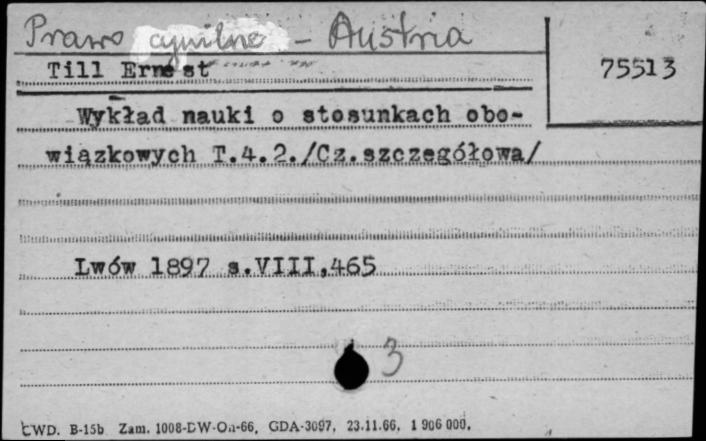 Prawo cywilne - Austria
Till Ernest
75513
Wykład nauki o stosunkach obo-
wiązkowych T.4.2./Cz.szczegółowa/
Lwów 1897 s.VIII,465
3
CWD. B-15b Zam. 1008-DW-On-66, GDA-3097, 23.11.66, 1 906 000,